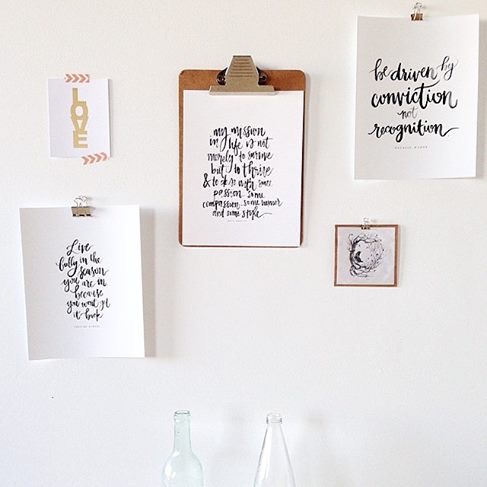 LOVE
my mission
in life is not
merely to survive
but to thrive
& to do so with some
passion, some
compassion, some humor
and some style
be driven by
conviction
not
recognition
Live
fully in the
season
you are in
because
you won't get
it back